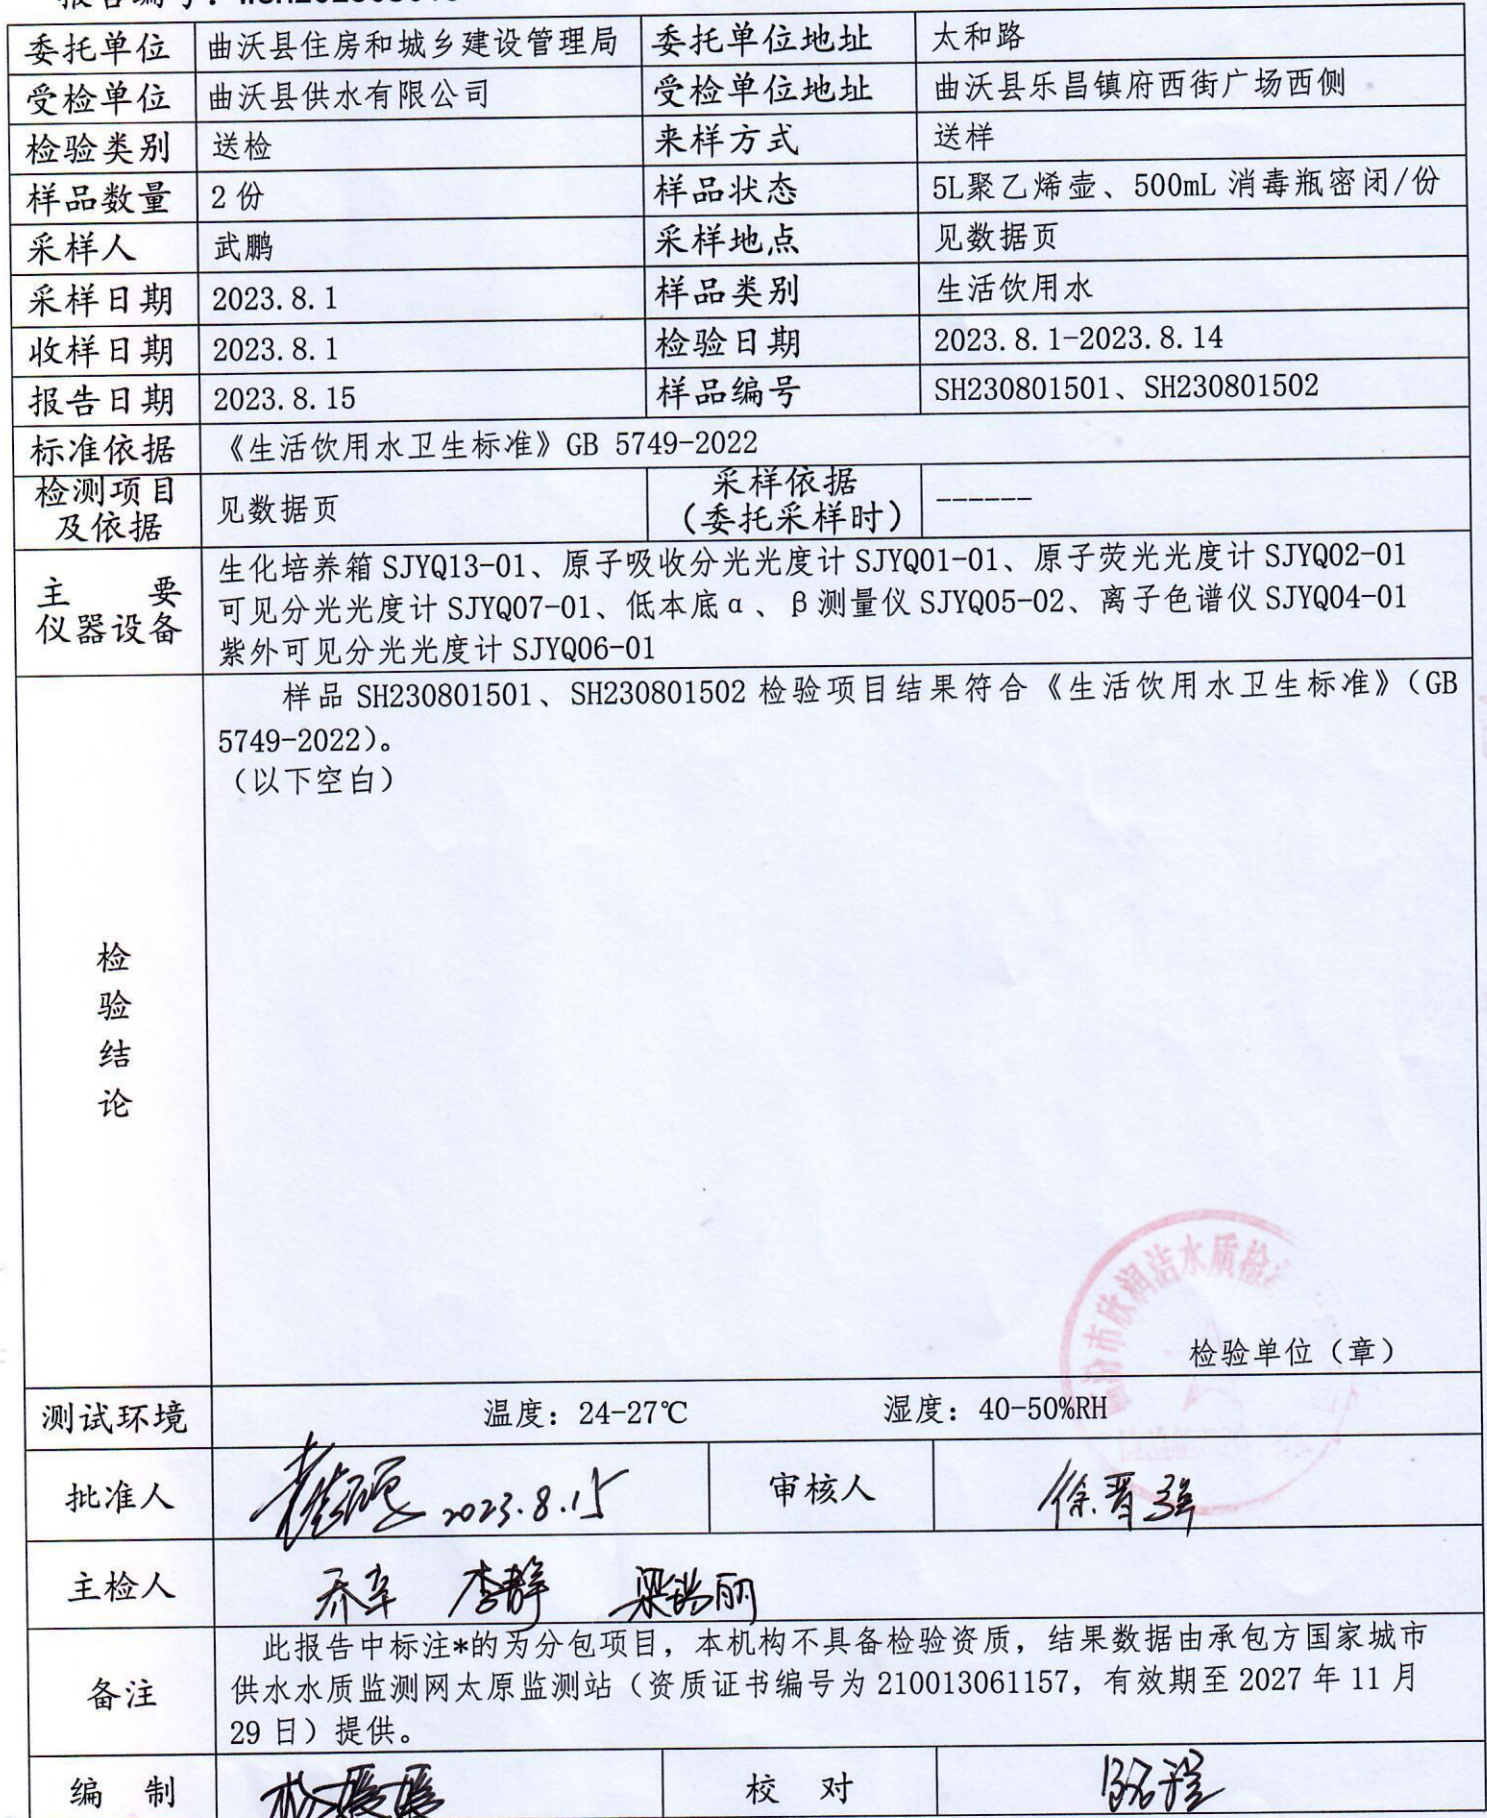 委托单位 曲沃县住房和城乡建设管理局 委托单位地址 太和路
受检单位 曲沃县供水有限公司 受检单位地址 曲沃县乐昌镇府西街广场西侧
检验类别 送检 来样方式 送样
样品数量 2份 样品状态 5L聚乙烯壶、500mL 消毒瓶密闭/份
采样人 武鹏 采样地点 见数据页
采样日期 2023.8.1 样品类别 生活饮用水
收样日期 2023.8.1 检验日期 2023.8.1-2023.8.14
报告日期 2023.8.15 样品编号 SH230801501、SH230801502
标准依据 《生活饮用水卫生标准》GB 5749-2022
检测项目
及依据
见数据页
采样依据
（委托采样时）
------
主 要
仪器设备
生化培养箱 SJYQ13-01、原子吸收分光光度计 SJYQ01-01、原子荧光光度计 SJYQ02-01
可见分光光度计 SJYQ07-01、低本底α、β测量仪 SJYQ05-02、离子色谱仪 SJYQ04-01
紫外可见分光光度计 SJYQ06-01
检
验
结
论
样品 SH230801501、SH230801502 检验项目结果符合《生活饮用水卫生标准》（GB
5749-2022）。
（以下空白）
市欣润洁水质检
检验单位（章）
测试环境 温度：24-27℃ 湿度：40-50%RH
批准人 2023.8.15 审核人 徐晋强
主检人 乔辛 李静 梁瑞丽
备注
此报告中标注*的为分包项目，本机构不具备检验资质，结果数据由承包方国家城市
供水水质监测网太原监测站（资质证书编号为 210013061157，有效期至 2027 年 11 月
29 日）提供。
编 制 校 对